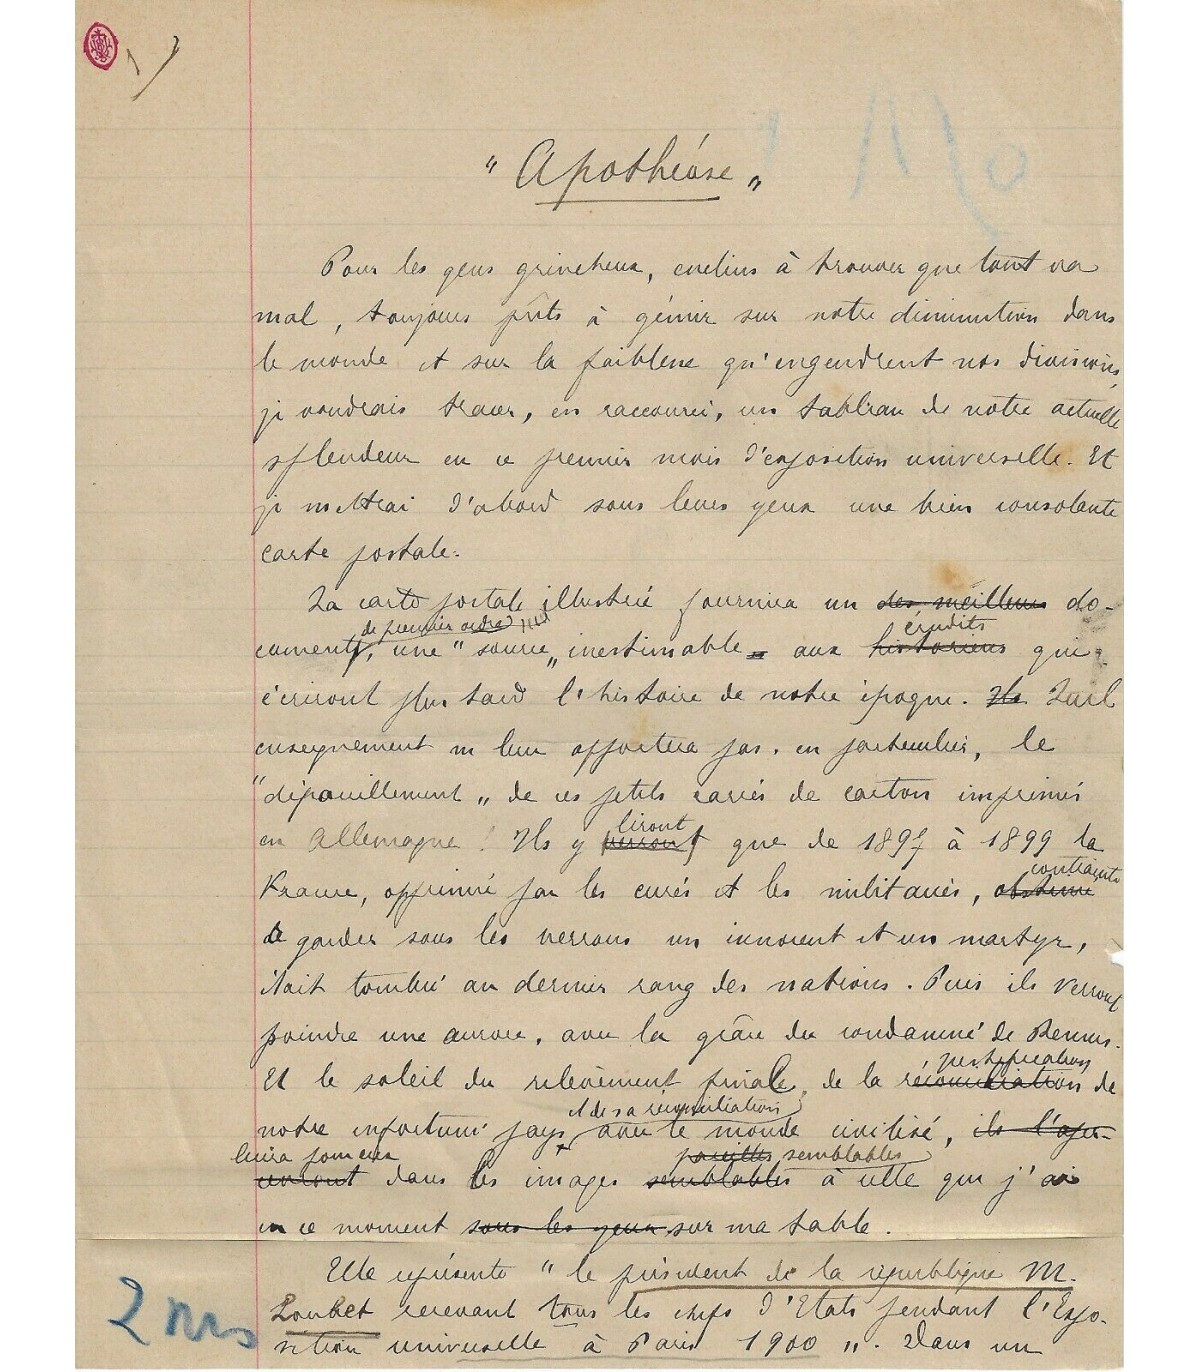 " Apothéose "
Pour les gens grincheux, enclins à trouver que tout va
mal, toujours prêts à gémir sur notre diminution dans
le monde et sur la faiblesse qu'engendrent nos divisions,
je voudrais tracer, en raccourci, un tableau de notre actuelle
splendeur en ce premier mois d'exposition universelle. Et
je mettrai d'abord sous leurs yeux une bien consolante
carte postale.
La carte postale illustrée fournira un des meilleurs do-
de premier ordre érudits
cument, une " source " inestimable aux historiens qui
écriront plus tard l'histoire de notre époque. Ils Quel
enseignement ne leur apportera pas, en particulier, le
" dépouillement " de ces petits carrés de carton imprimés
en Allemagne ! Ils y verront que de 1897 à 1899 la
liront contrainte
France, opprimée par les curés et les militaires, obstinée
de garder sous les verrous un innocent et un martyr,
était tombée au dernier rang des nations. Puis ils verront
poindre une aurore, avec la grâce du condamné de Rennes.
justification
Et le soleil du relèvement final, de la réconciliation de
et de sa réconciliation
notre infortuné pays avec le monde civilisé, ils l'aper-
luira pour eux pareilles semblables
cevront dans les images semblables à celle que j'ai
en ce moment sous les yeux sur ma table.
Elle représente " le président de la république M.
Loubet recevant tous les chefs d'Etats pendant l'Expo-
sition universelle à Paris 1900 ". Dans un
2